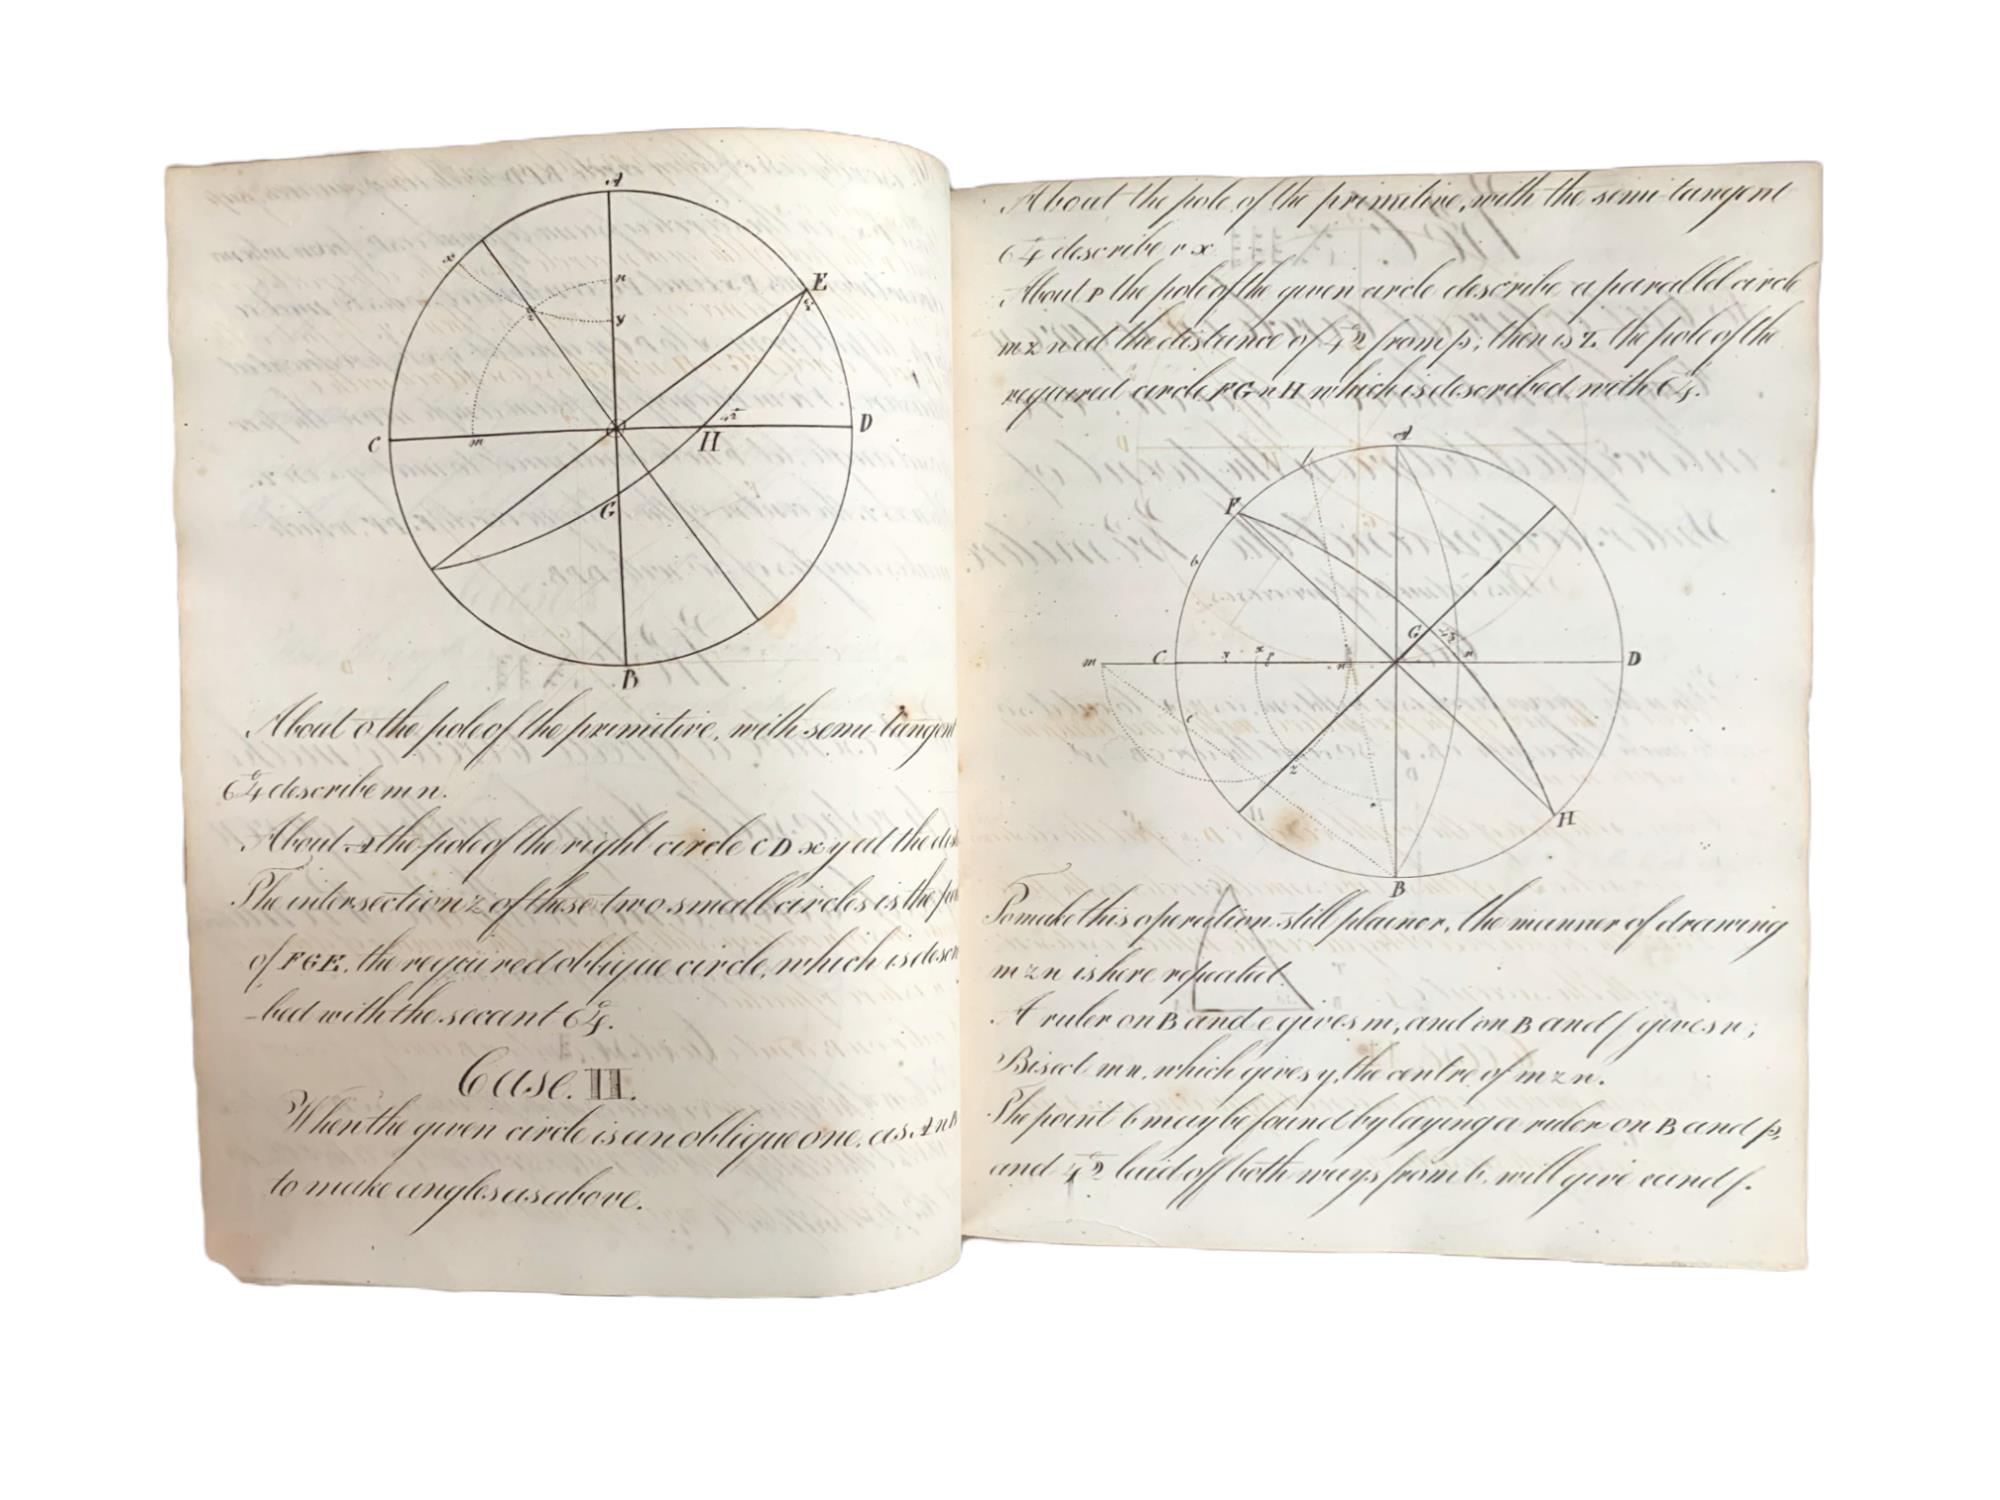 A
x
n
z
y
E
64
C
m
H
42
D
G
B
About o the pole of the primitive, with semi-tangent
64° describe m n.
About A the pole of the right circle C D x y at the dis
The intersection z of these two small circles is the po
of F G E, the required oblique circle, which is descr
-bed with the secant 64°.
Case. II.
When the given circle is an oblique one, as A n B
to make angles as above.
About the pole of the primitive, with the semi-tangent
64° describe r x
About P the pole of the given circle describe a parallel circle
m z n at the distance of 42° from p; then is z the pole of the
required circle F G n H which is described with 64°.
A
f
F
b
G
42
m
C
y
x
p
n
n
D
e
z
H
B
To make this operation still plainer, the manner of drawing
m z n is here repeated.
A ruler on B and e gives m, and on B and f gives n;
Bisect m n, which gives y, the centre of m z n.
The point b may be found by laying a ruler on B and p,
and 42° laid off both ways from b, will give e and f.